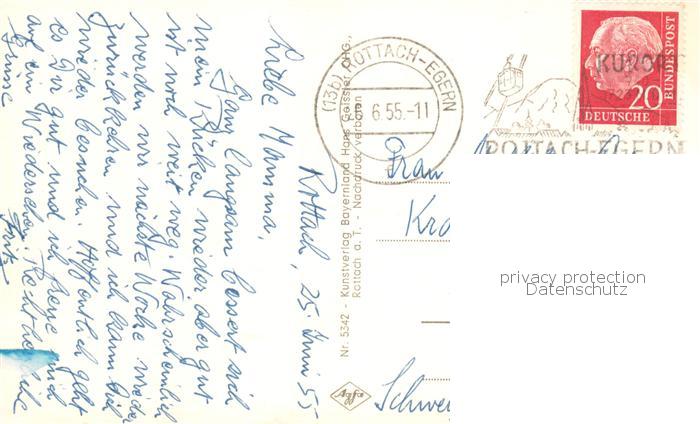 Rottach, 25 Juni 55
Liebe Mamma,
Ganz langsam bessert sich
mein Rücken wieder aber gut
ist noch weit weg. Wahrscheinlich
werden wir nächste Woche wieder
zurückkehren und ich kann Dich
wieder besuchen. Hoffentlich geht
es Dir gut und ich freue mich
auf ein Wiedersehen. Recht herzliche
Grüsse Fritz
Nr. 5342 - Kunstverlag Bayernland Hans Geissler OHG.,
Rottach a. T. - Nachdruck verboten
Agfa
(13b) ROTTACH-EGERN
6.55.-11
KURORT
ROTTACH-EGERN
20
DEUTSCHE
BUNDESPOST
Frau
Kro
Schwe
privacy protection
Datenschutz